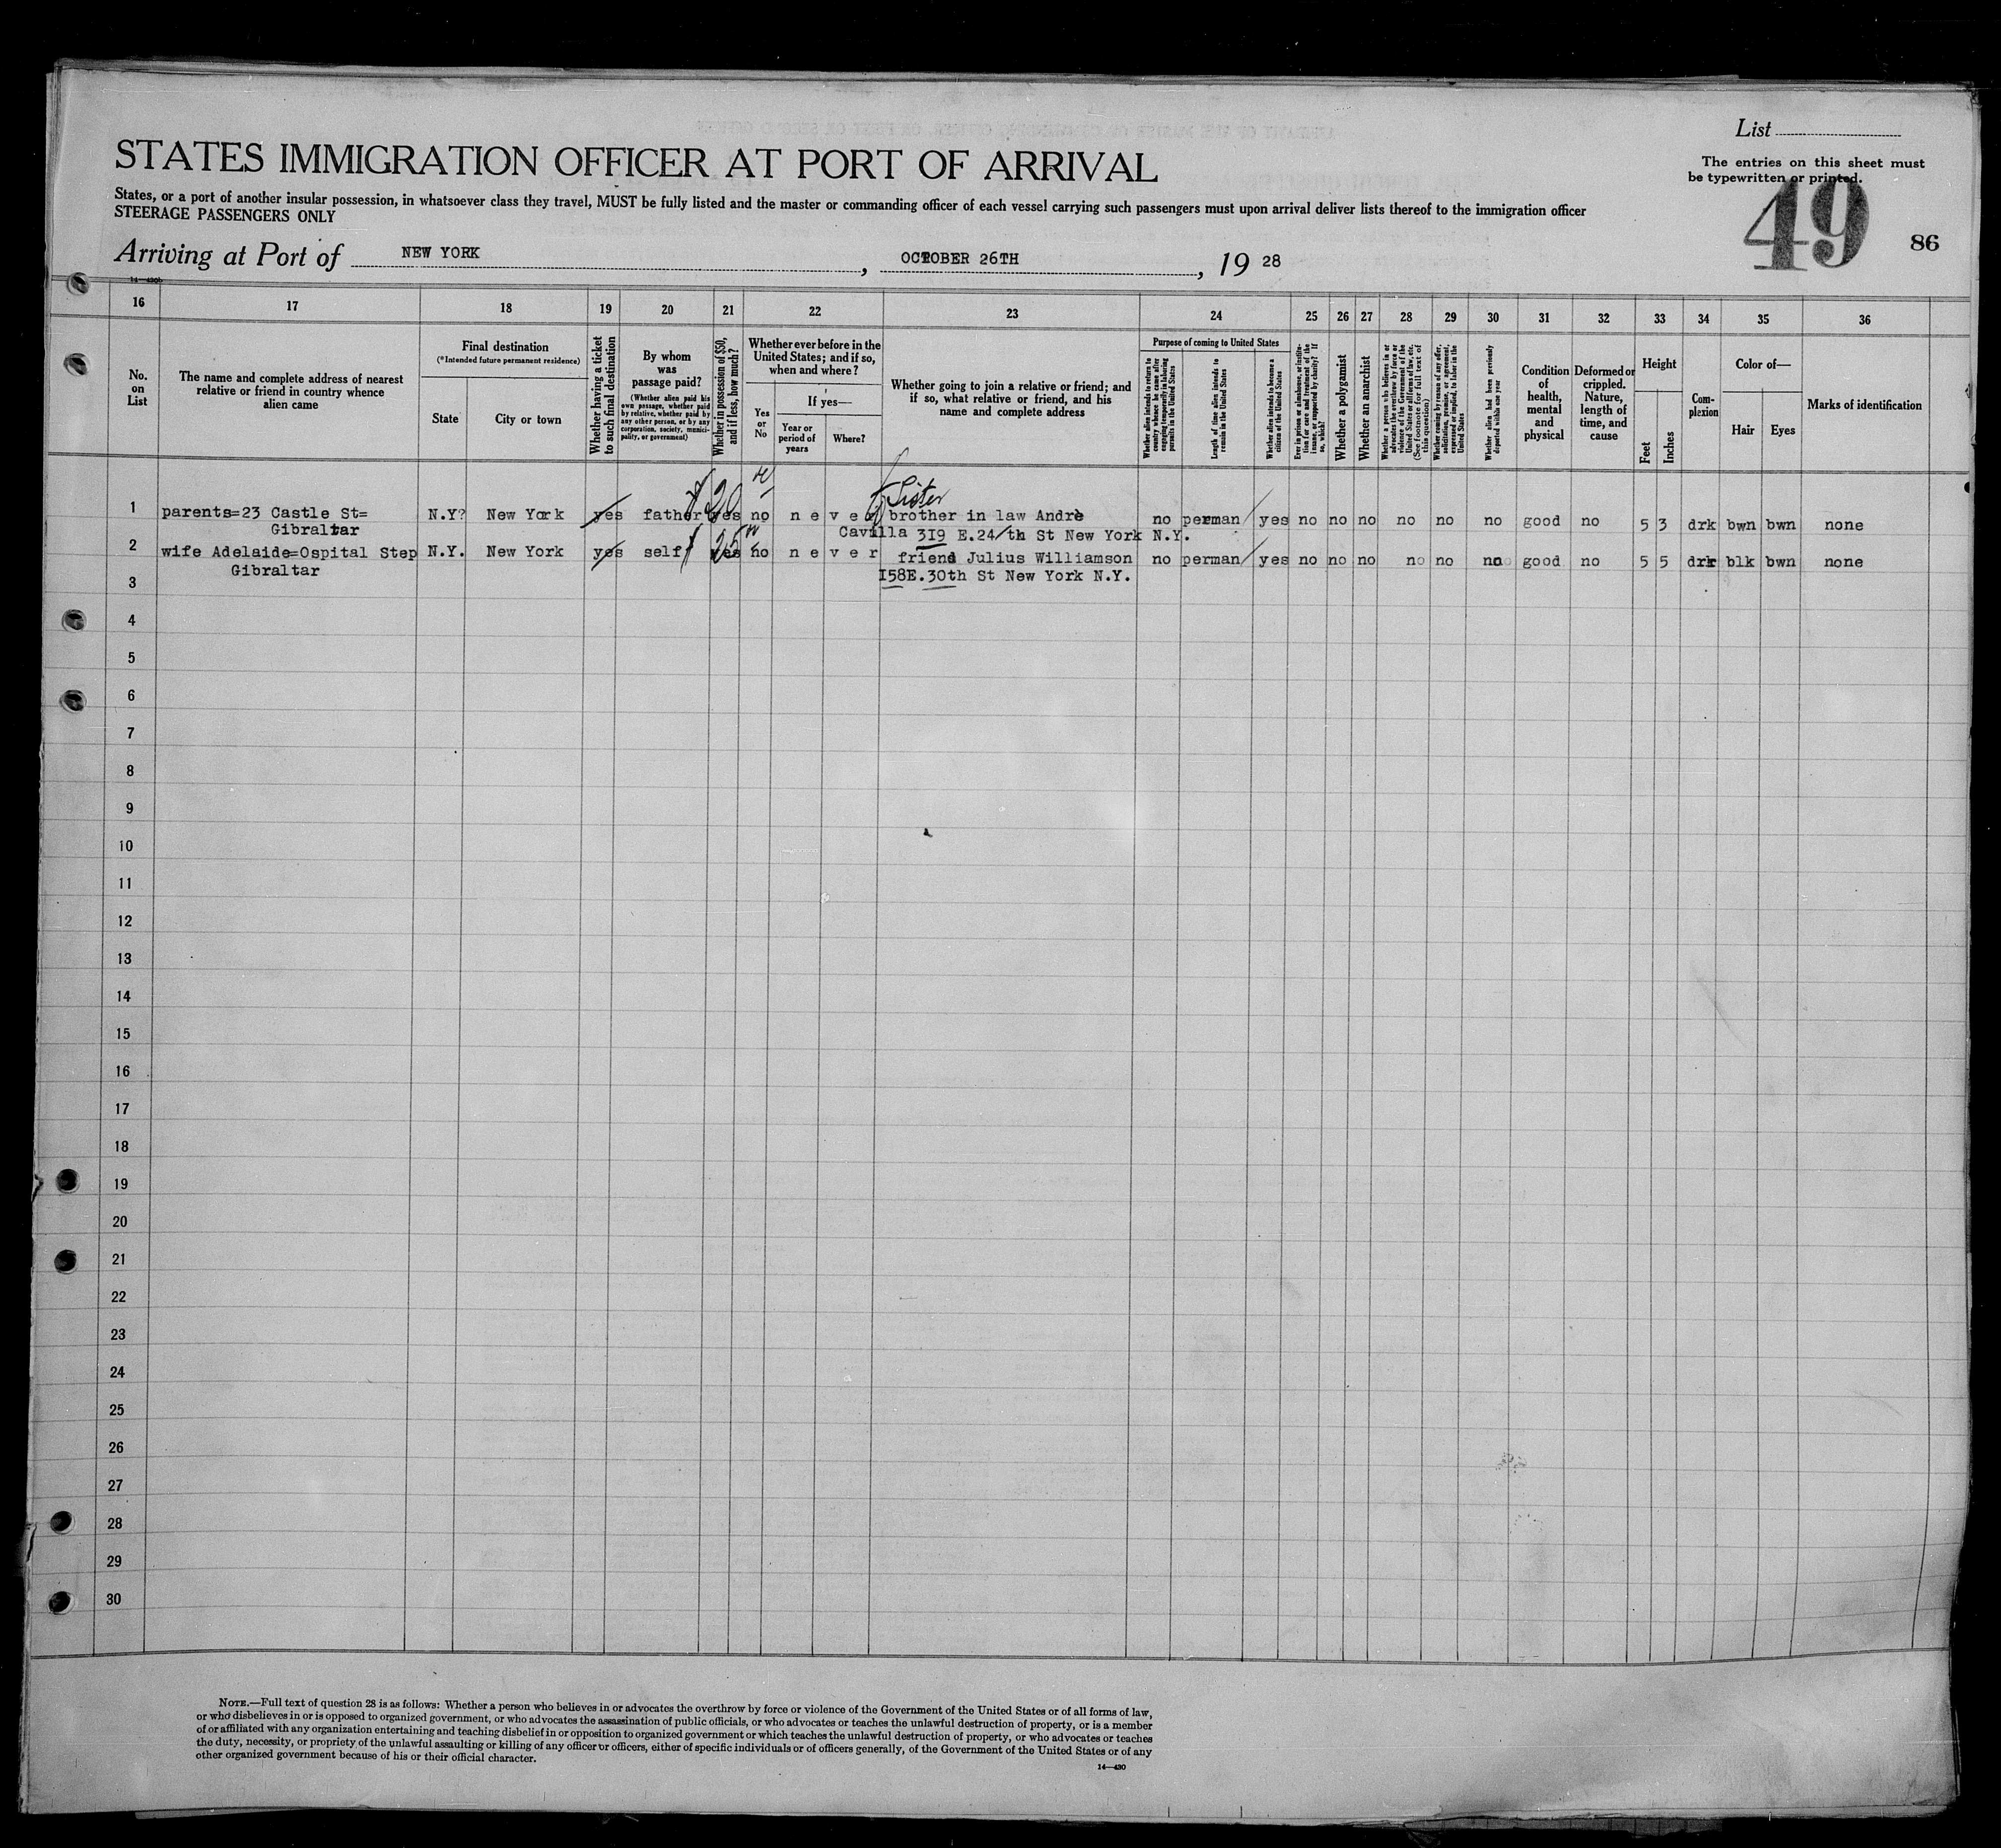 List
The entries on this sheet must
be typewritten or printed.
STATES IMMIGRATION OFFICER AT PORT OF ARRIVAL
States, or a port of another insular possession, in whatsoever class they travel, MUST be fully listed and the master or commanding officer of each vessel carrying such passengers must upon arrival deliver lists thereof to the immigration officer
STEERAGE PASSENGERS ONLY
49
86
Arriving at Port of NEW YORK, OCTOBER 26TH, 19 28
16 17 18 19 20 21 22 23 24 25 26 27 28 29 30 31 32 33 34 35 36
No. on List
The name and complete address of nearest
relative or friend in country whence
alien came
Final destination
(*Intended future permanent residence)
State
City or town
Whether having a ticket
to such final destination
By whom
was
passage paid?
(Whether alien paid his
own passage, whether paid
by relative, whether paid by
any other person, or by any
corporation, society, munici-
pality, or government)
Whether in possession of $50,
and if less, how much?
Whether ever before in the
United States; and if so,
when and where?
Yes
or
No
If yes—
Year or
period of
years
Where?
Whether going to join a relative or friend; and
if so, what relative or friend, and his
name and complete address
Purpose of coming to United States
Whether alien intends to return to
country whence he came after
engaging temporarily in laboring
pursuits in the United States
Length of time alien intends to
remain in the United States
Whether alien intends to become a
citizen of the United States
Ever in prison or almshouse, or institu-
tion for care and treatment of the
insane, or supported by charity? If
so, which?
Whether a polygamist
Whether an anarchist
Whether a person who believes in or
advocates the overthrow by force or
violence of the Government of the
United States or all forms of law, etc.
(See footnote for full text of
this question)
Whether coming by reason of any offer,
solicitation, promise, or agreement,
expressed or implied, to labor in the
United States
Whether alien had been previously
deported within one year
Condition
of
health,
mental
and
physical
Deformed or
crippled.
Nature,
length of
time, and
cause
Height
Feet
Inches
Com-
plexion
Color of—
Hair
Eyes
Marks of identification
20
Sister
1 parents=23 Castle St= N.Y? New York yes father yes no never brother in law Andrè no perman yes no no no no no no good no 5 3 drk bwn bwn none
Gibraltar Cavilla 3I9 E.24/th St New York N.Y.
25
2 wife Adelaide=Ospital Step N.Y. New York yes self yes no never friend Julius Williamson no perman yes no no no no no no good no 5 5 drk blk bwn none
Gibraltar I58E.30th St New York N.Y.
3
4
5
6
7
8
9
10
11
12
13
14
15
16
17
18
19
20
21
22
23
24
25
26
27
28
29
30
NOTE.—Full text of question 28 is as follows: Whether a person who believes in or advocates the overthrow by force or violence of the Government of the United States or of all forms of law,
or who disbelieves in or is opposed to organized government, or who advocates the assassination of public officials, or who advocates or teaches the unlawful destruction of property, or is a member
of or affiliated with any organization entertaining and teaching disbelief in or opposition to organized government or which teaches the unlawful destruction of property, or who advocates or teaches
the duty, necessity, or propriety of the unlawful assaulting or killing of any officer or officers, either of specific individuals or of officers generally, of the Government of the United States or of any
other organized government because of his or their official character.
14—430